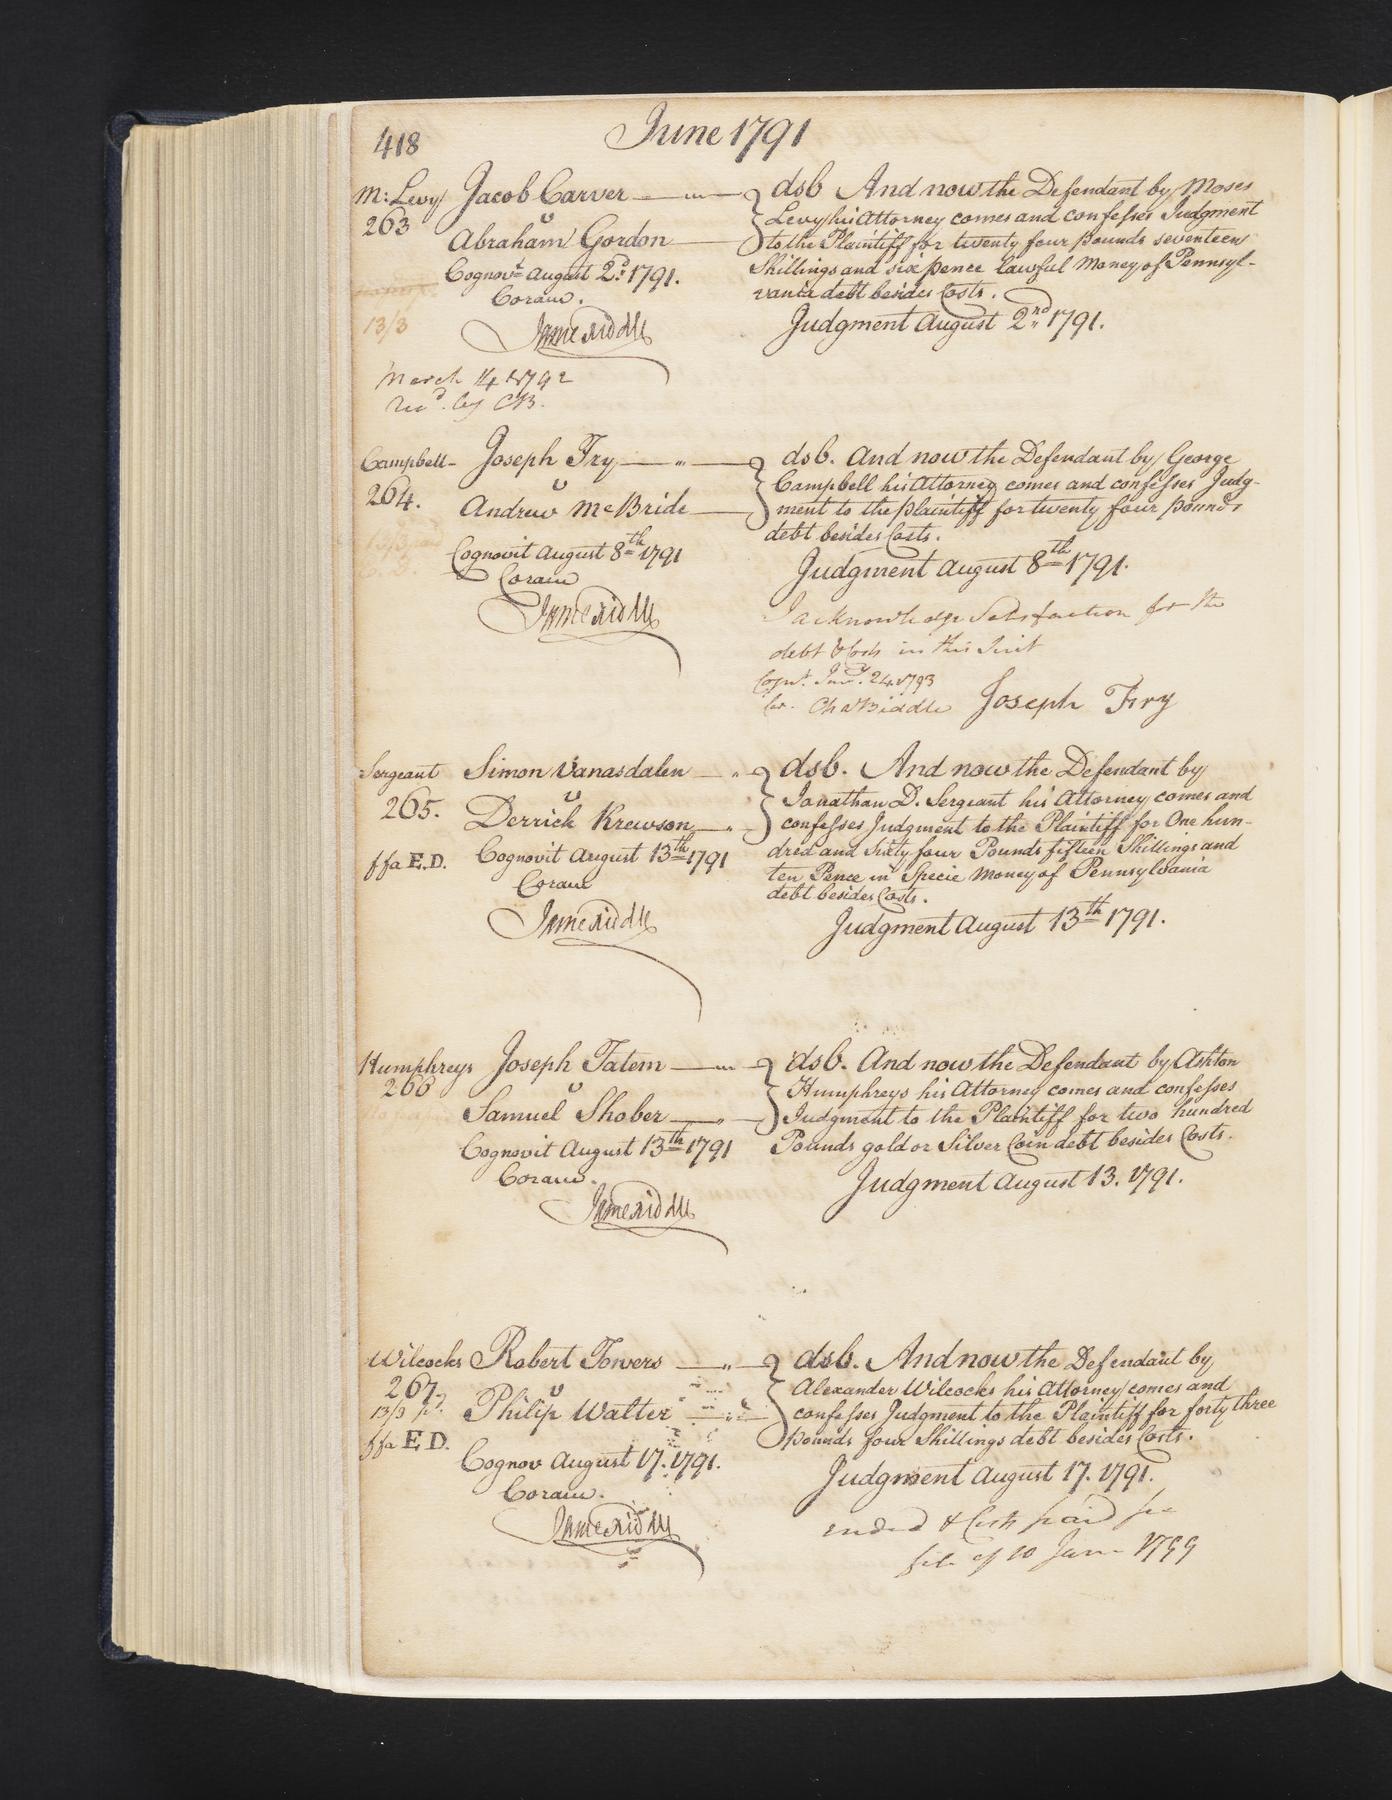 418
June 1791
M: Levy Jacob Carver dsb And now the Defendant by Moses
263 v Levy his Attorney comes and confesses Judgment
Abraham Gordon to the Plaintiff for twenty four pounds seventeen
Cognovt. August 2d. 1791. Shillings and six pence lawful Money of Pennsyl-
Coram. vania debt besides Costs.
13/3 Judgment August 2nd. 1791.
James Biddle
March 14 1792
Recd. by CB.
Campbell- Joseph Fry dsb. And now the Defendant by George
264. v Campbell his Attorney comes and confesses Judg-
Andrew McBride ment to the plaintiff for twenty four pounds
debt besides Costs.
Cognovit August 8th 1791 Judgment August 8th 1791.
Coram
James Biddle I acknowledge Satisfaction for the
debt & Costs in this Suit
Cognt. Jany. 24. 1793
Cor. Chas Biddle Joseph Fry
Sergeant Simon Vanasdalen dsb. And now the Defendant by
265. v Jonathan D. Sergeant his Attorney comes and
Derrick Krewson confesses Judgment to the Plaintiff for One hun-
ffa E.D. Cognovit August 13th 1791 dred and sixty four Pounds fifteen Shillings and
Coram ten Pence in Specie Money of Pennsylvania
debt besides Costs.
James Biddle Judgment August 13th 1791.
Humphreys Joseph Tatem dsb. And now the Defendant by Ashton
266 v Humphreys his Attorney comes and confesses
Samuel Shober Judgment to the Plaintiff for two hundred
Cognovit August 13th 1791 Pounds gold or Silver Coin debt besides Costs.
Coram. Judgment August 13. 1791.
James Biddle
Wilcocks Robert Towers dsb. And now the Defendant by
267. v Alexander Wilcocks his Attorney comes and
13/3 pd. Philip Walter confesses Judgment to the Plaintiff for forty three
ffa E.D. pounds four Shillings debt besides Costs.
Cognov August 17. 1791. Judgment August 17. 1791.
Coram.
James Biddle ended & Costs paid
10 June 1799